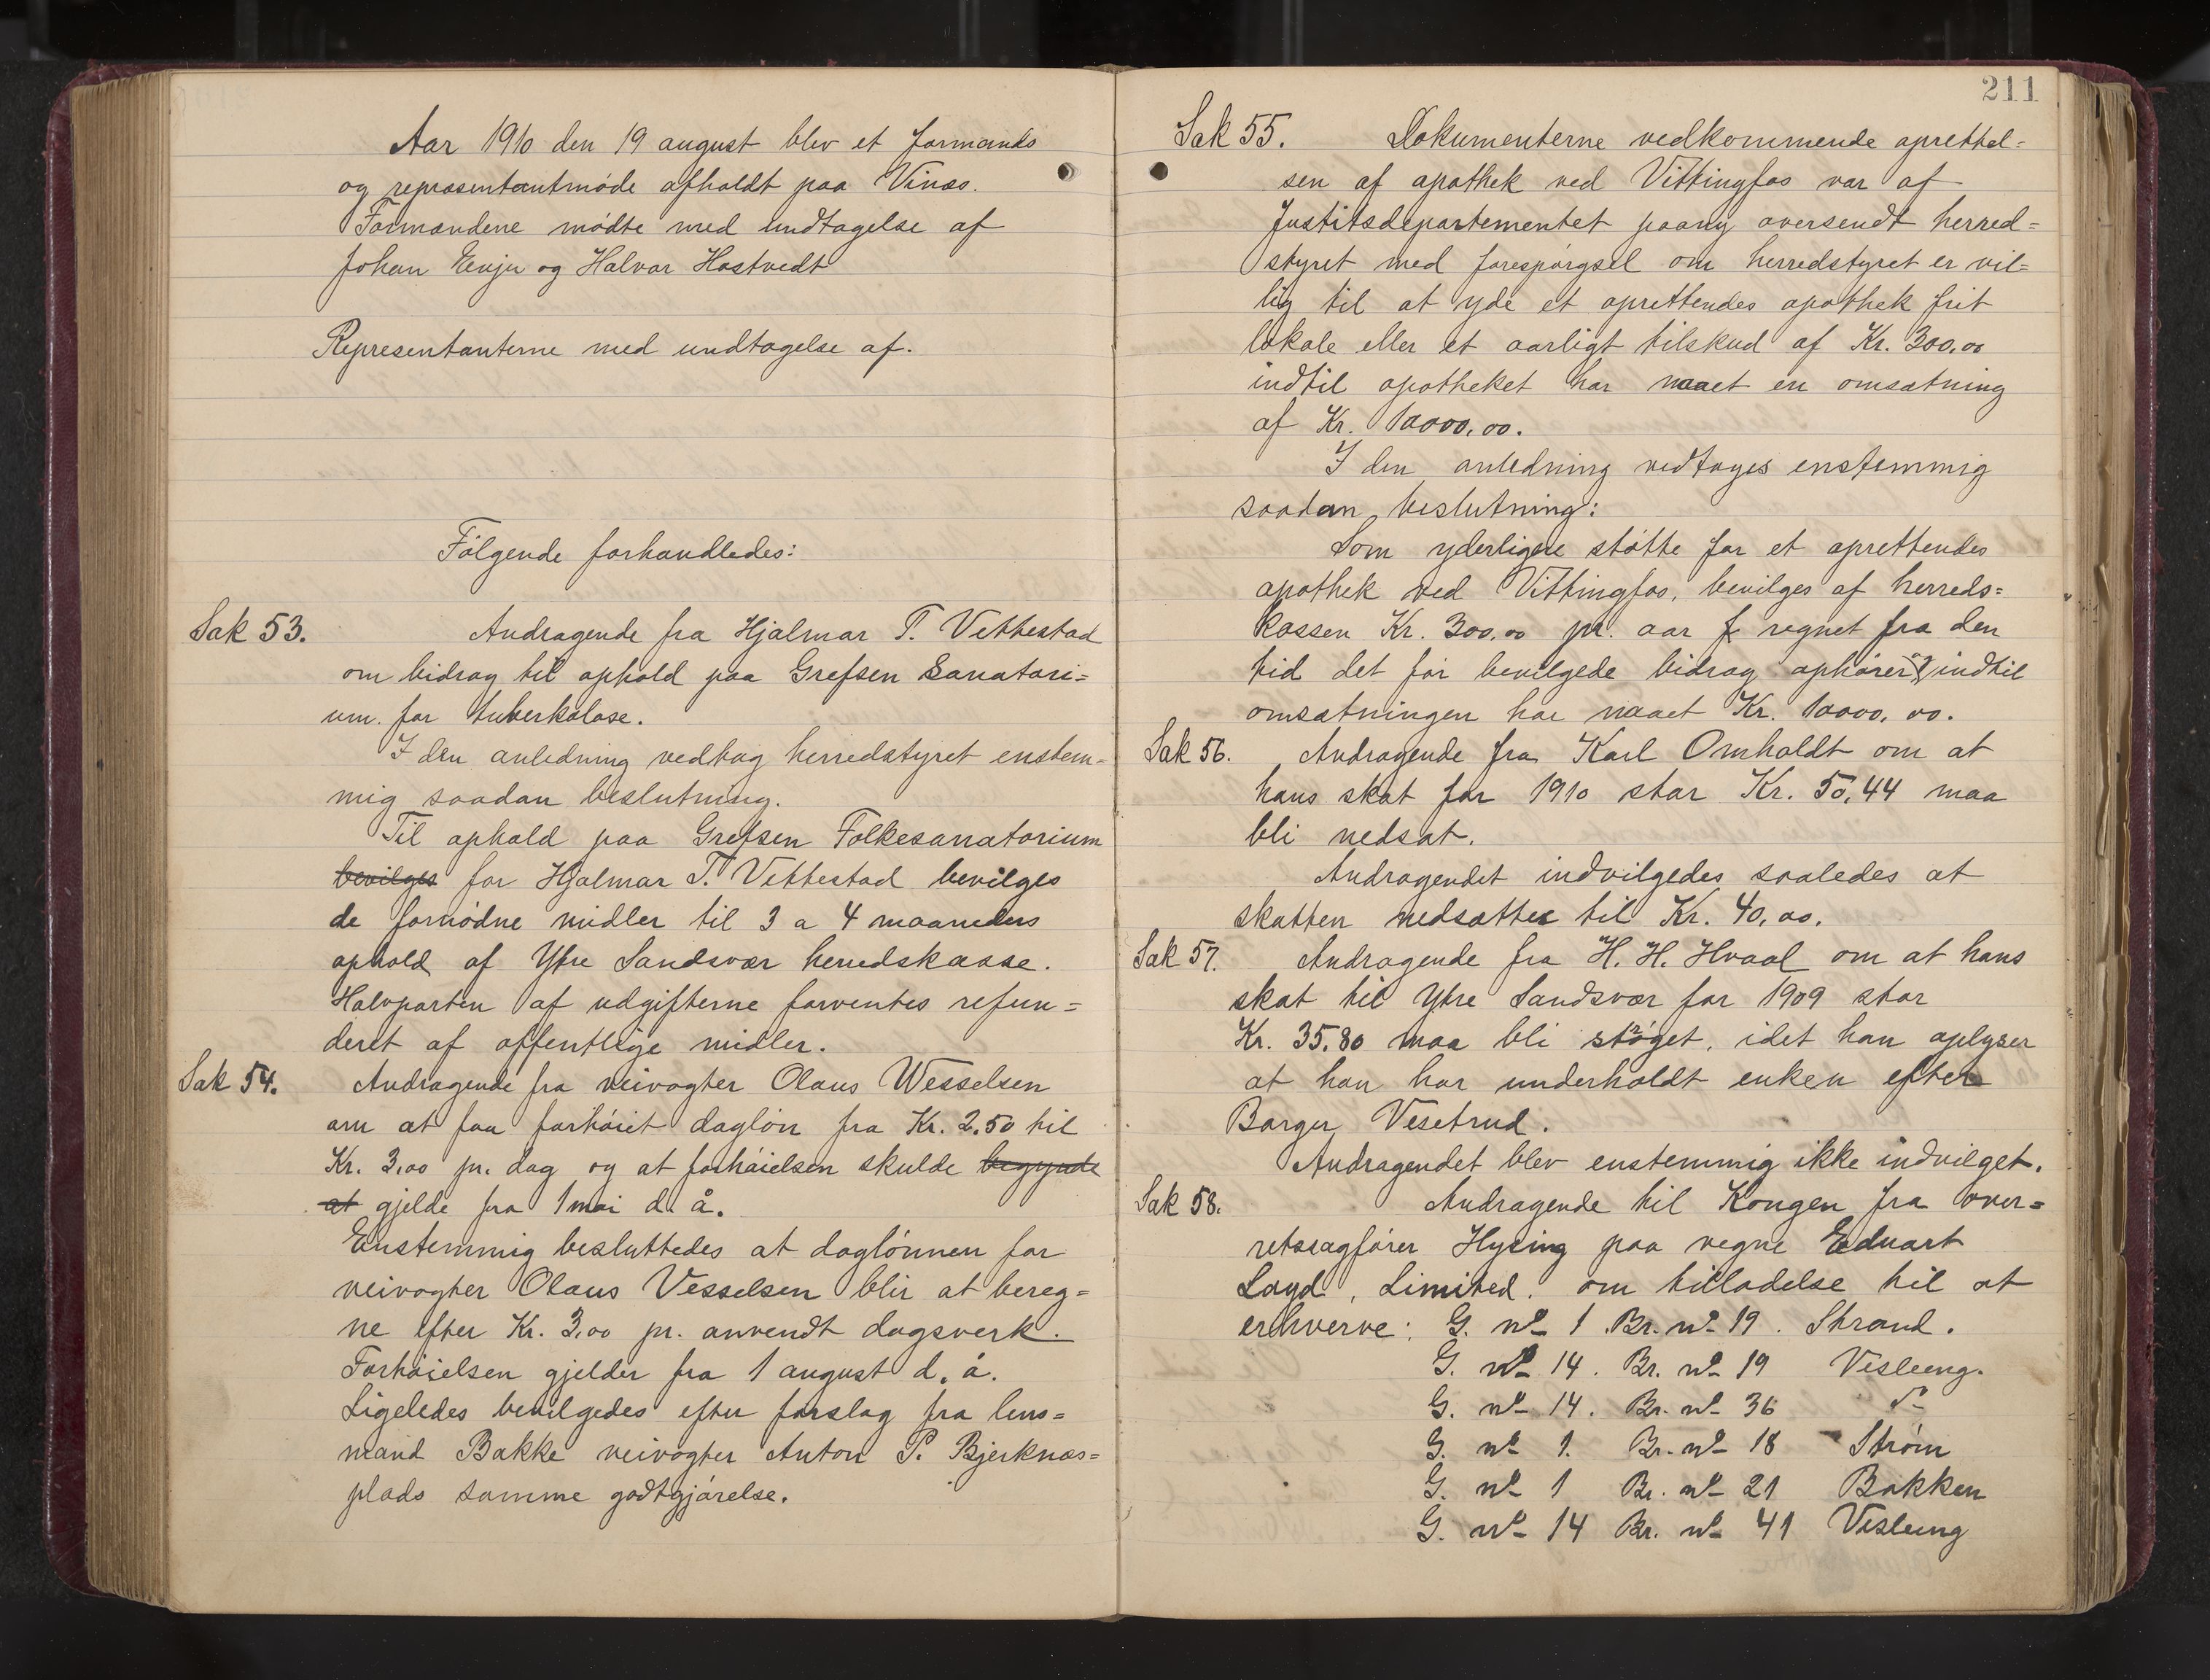 Aar 1910 den 19 august blev et formands
og representantmøde afholdt paa Vinæs.
Formændene mødte med undtagelse af
Johan Enju og Halvor Hostvedt
Representanterne med undtagelse af.
Følgende forhandledes:
Sak 53. Andragende fra Hjalmar T. Vettestad
om bidrag til ophold paa Grefsen Sanatori=
um. for tuberkolose.
I den anledning vedtog herredstyret enstem=
mig saadan beslutning.
Til ophold paa Grefsen Folkesanatorium
bevilges for Hjalmar T. Vettestad bevilges
de fornødne midler til 3 a 4 maaneders
ophold af Ytre Sandsvær herredskasse.
Halvparten af udgifterne forventes refun=
dert af offentlige midler.
Sak 54. Andragende fra veivogter Olaus Wesselsen
om at faa forhøiet dagløn fra Kr. 2.50 til
Kr. 3,00 pr. dag og at forhøielsen skulde begynde
at gjelde fra 1 mai d. å.
Enstemmig besluttedes at daglønnen for
veivogter Olaus Vesselsen blir at bereg=
ne efter Kr. 3,00 pr. anvendt dagsverk.
Forhøielsen gjelder fra 1 august d. å.
Ligeledes bevilgedes efter forslag fra lens=
mand Bakke veivogter Anton P. Bjerknæs=
plads samme godtgjørelse.
211
Sak 55. Dokumenterne vedkommende oprettel=
sen af apothek ved Vittingfos var af
Justitsdepartementet paany oversendt herred=
styret med forespørgsel om herredstyret er vil=
lig til at yde et oprettendes apothek frit
lokale eller et aarligt tilskud af Kr. 300,00
indtil apotheket har naaet en omsætning
af Kr. 10000,00.
I den anledning vedtoges enstemmig
saadan beslutning:
Som yderligere støtte for et oprettendes
apothek ved Vittingfos, bevilges af herreds=
kassen Kr. 300,00 pr. aar f regnet fra den
tid det før bevilgede bidrag ophører og indtil
omsætningen har naaet Kr. 10000,00.
Sak 56. Andragende fra Karl Omholdt om at
hans skat for 1910 stor Kr. 50,44 maa
bli nedsat.
Andragendet indvilgedes saaledes at
skatten nedsættes til Kr. 40,00.
Sak 57. Andragende fra H. H. Hvaal om at hans
skat til Ytre Sandsvær for 1909 stor
Kr. 35.80 maa bli strøget, idet han oplyser
at han har underholdt enken efter
Borger Vesetrud.
Andragendet blev enstemmig ikke indvilget.
Sak 58. Andragende til Kongen fra over=
retssagfører Hysing paa vegne Eduart
Loyd, Limited. om tilladelse til at
erhverve: G. no 1 Br. no 19. Strand.
G. no 14. Br. no 19 Visleeng.
G. no 14. Br. no 36 do
G. no 1. Br. no 18 Strøm
G. no 1 Br. no 21 Bakken
G. no 14 Br. no 41 Visleeng